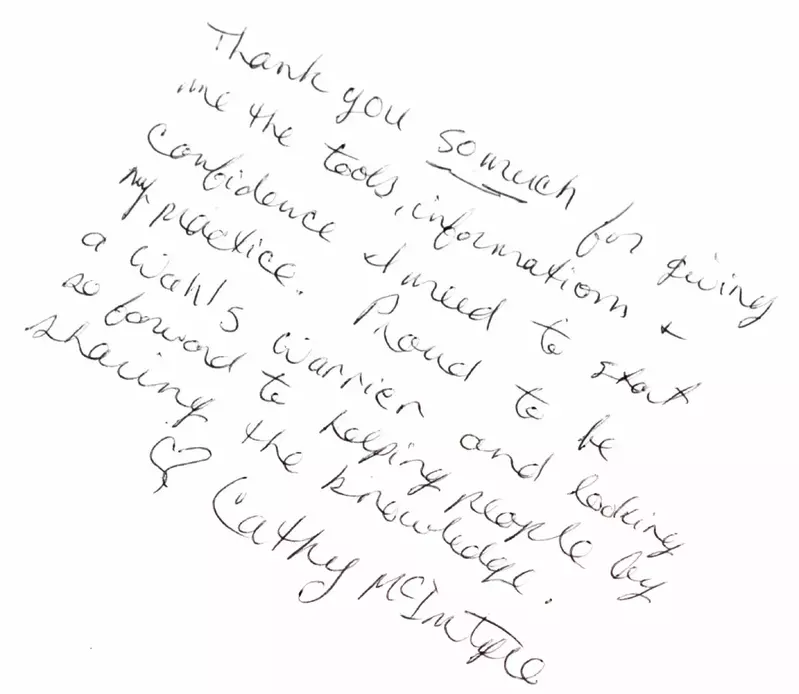 Thank you so much for giving
me the tools, information +
confidence I need to start
my practice. Proud to be
a Wahls Warrier and looking
so forward to helping people by
sharing the knowledge.
♡ Cathy McIntyre